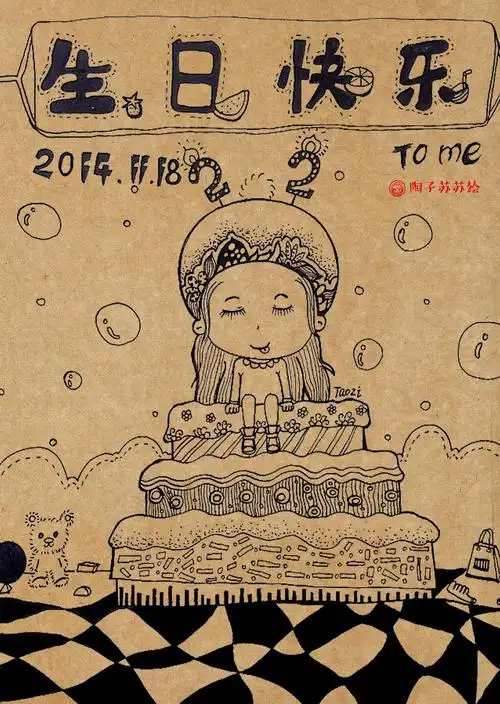 生日快乐
2014.11.18
TO me
陶子苏苏绘
22
Taozi